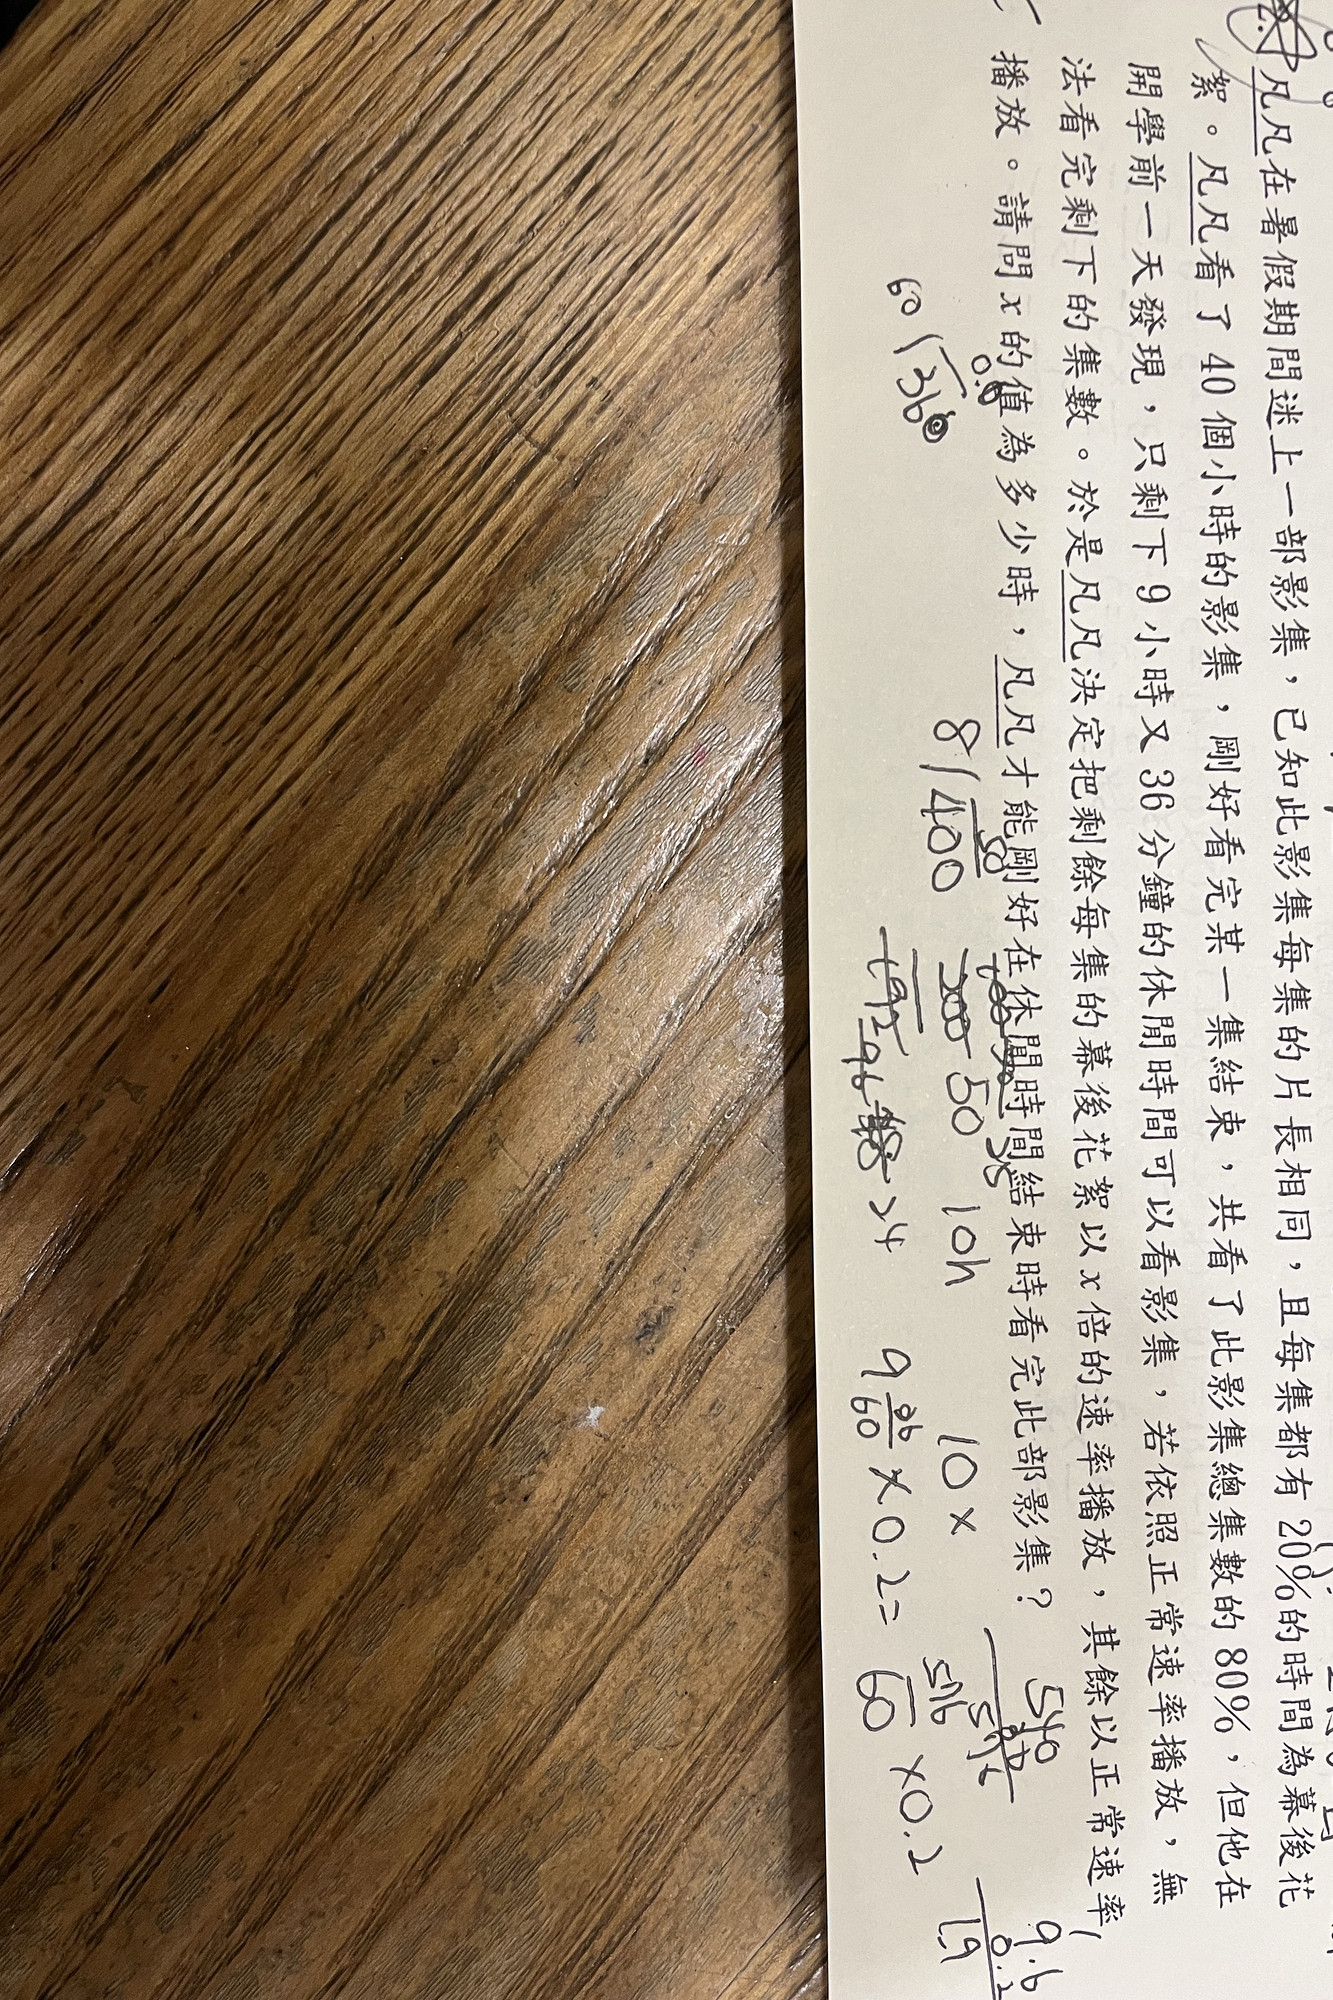 凡凡在暑假期間迷上一部影集，已知此影集每集的片長相同，且每集都有20%的時間為幕後花
絮。凡凡看了40個小時的影集，剛好看完某一集結束，共看了此影集總集數的80%，但他在
開學前一天發現，只剩下9小時又36分鐘的休閒時間可以看影集，若依照正常速率播放，無
法看完剩下的集數。於是凡凡決定把剩餘每集的幕後花絮以x倍的速率播放，其餘以正常速率
播放。請問x的值為多少時，凡凡才能剛好在休閒時間結束時看完此部影集？
0.6
60
360
50
8
400
50 10h
10×
540
576
9.6
0.2
1.9
9 36/60 ×0.2=
576/60 ×0.2
24